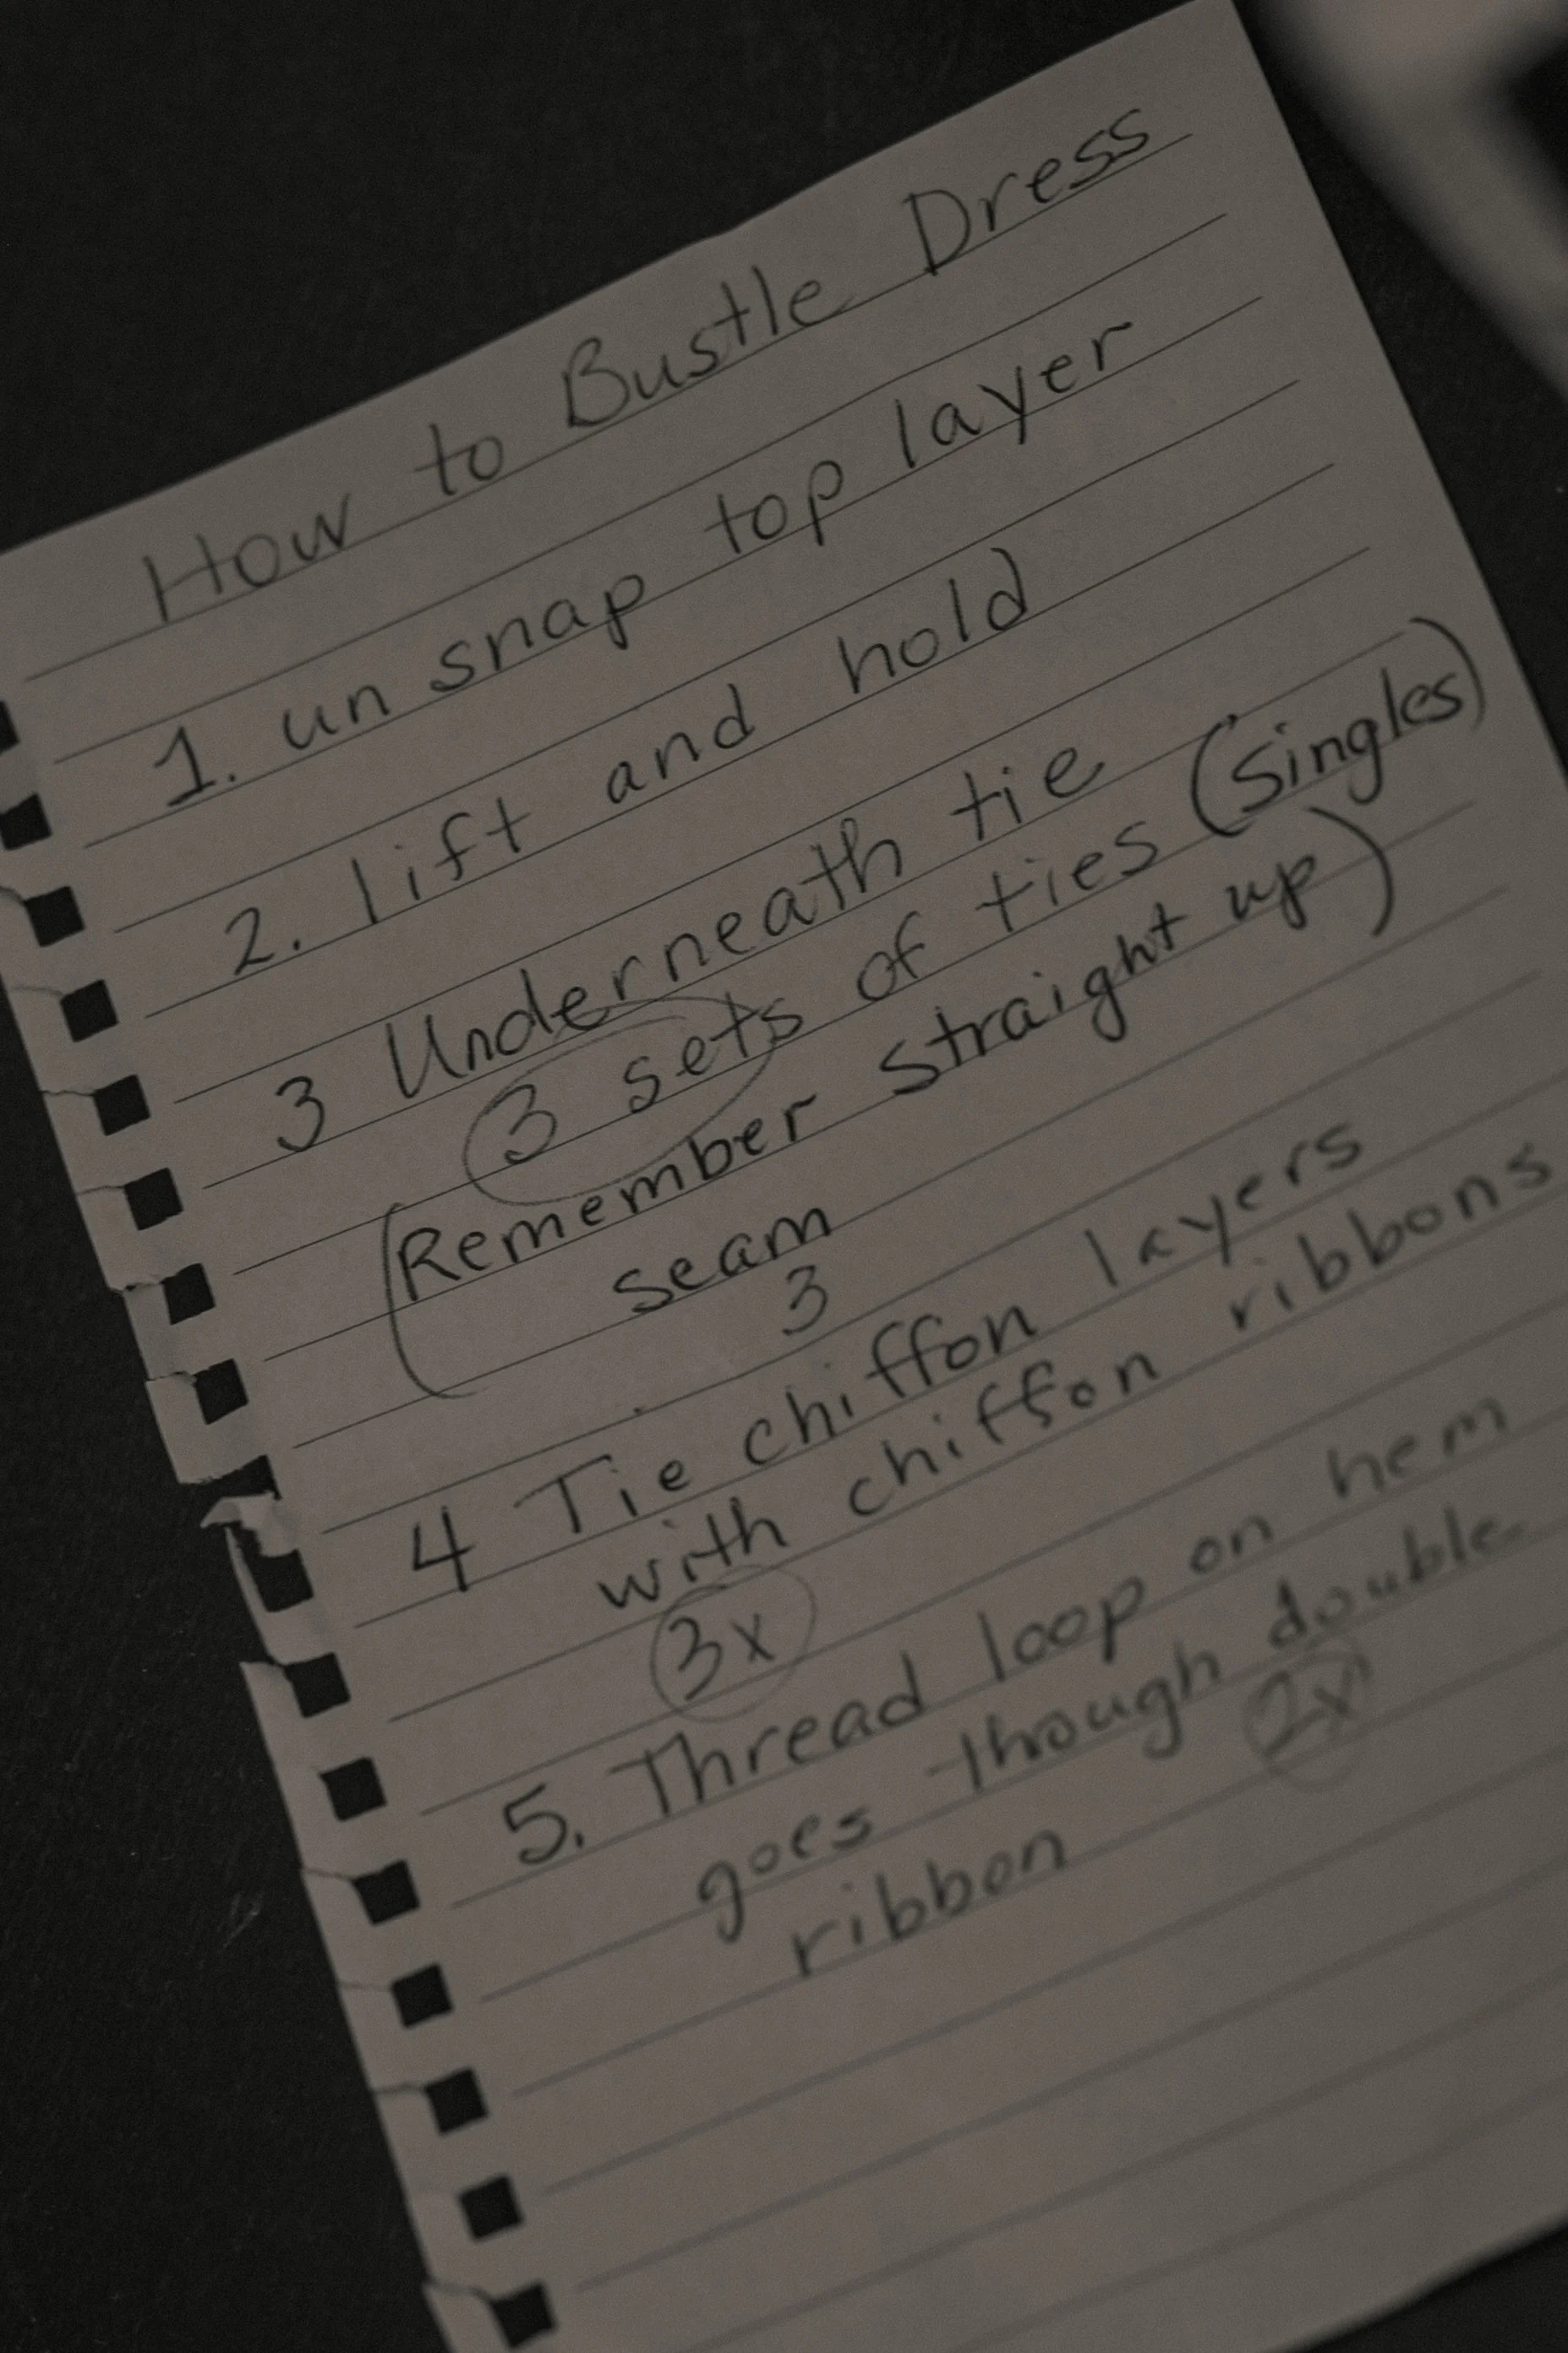 How to Bustle Dress
1. un snap top layer
2. lift and hold
3 Underneath tie
3 sets of ties (singles)
(Remember straight up
seam)
3
4 Tie chiffon layers
with chiffon ribbons
3x
5. Thread loop on hem
goes though double
2x
ribbon